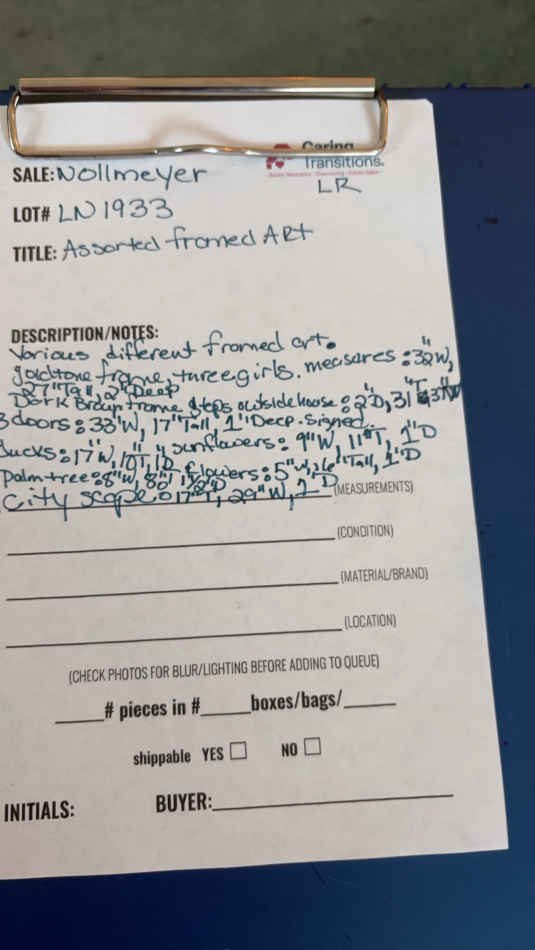 Caring
Transitions.
LR
SALE: Nollmeyer
LOT# LN1933
TITLE: Assorted framed ARt
DESCRIPTION/NOTES:
Various different framed art.
goldtone frame, three girls. measures: 32"W,
27"Tall, 2"Deep
Dark Brown frame steps outside house: 2"D, 31"T
3doors: 33"W, 17"Tall 1"Deep. Signed.
ducks: 17"W, 1D, sunflowers: 9"W, 11"T, 1"D
Palm-tree: 8"W, flowers: 5"W, 6"Tall, 1"D
City scape: 17"T, 29"W, 1"D (MEASUREMENTS)
(CONDITION)
(MATERIAL/BRAND)
(LOCATION)
(CHECK PHOTOS FOR BLUR/LIGHTING BEFORE ADDING TO QUEUE)
# pieces in # boxes/bags/
shippable YES NO
INITIALS: BUYER: